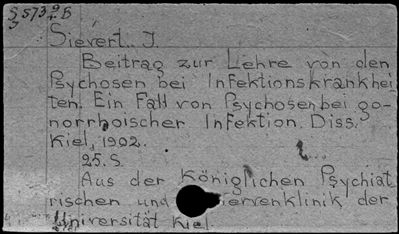 Sievert. J.
Beitrag zur Lehre von den
Psychosen bei Infektionskrankhei
ten. Ein Fall von Psychosen bei go-
norrhoischer Infektion. Diss.
Kiel, 1902.
25. S.
Aus der Königlichen Psychiat
rischen und Nervenklinik der
Universität Kiel.